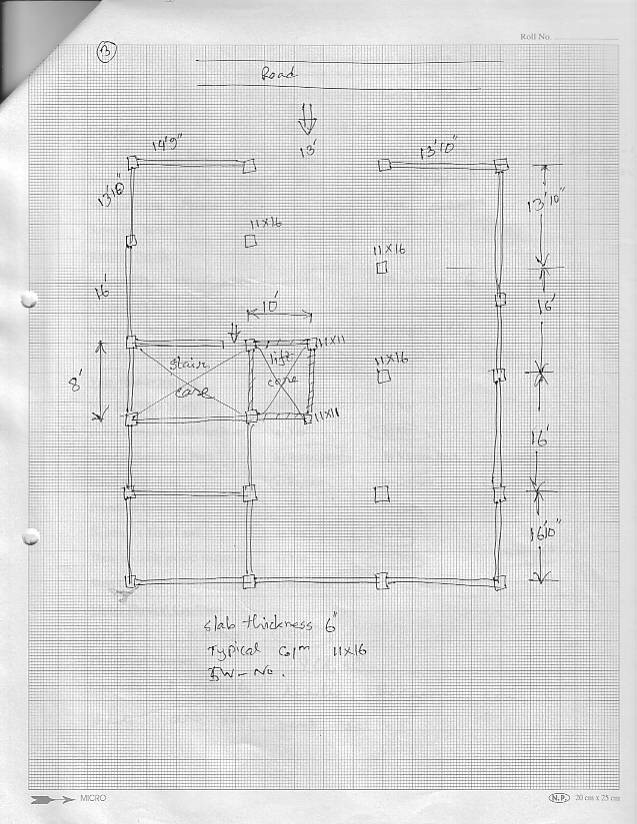 Roll No.
B
Road
14'9"
13'
13'10"
13'10"
13'10"
11X16
11X16
16'
16'
10'
11X11
stair
case
lift
core
11X16
8'
11X11
16'
16'10"
slab thickness 6"
Typical Colm 11X16
MICRO
N.P. 20 cm x 25 cm